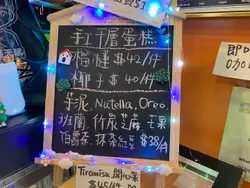 手工千層蛋糕
榴槤 $42/件
椰子 $40/件
芋泥, Nutella, Oreo
班蘭, 竹炭芝麻, 芒果
伯爵茶, 抹茶紅豆 $38/件
Tiramisu 開心果
$45/件
即
咖